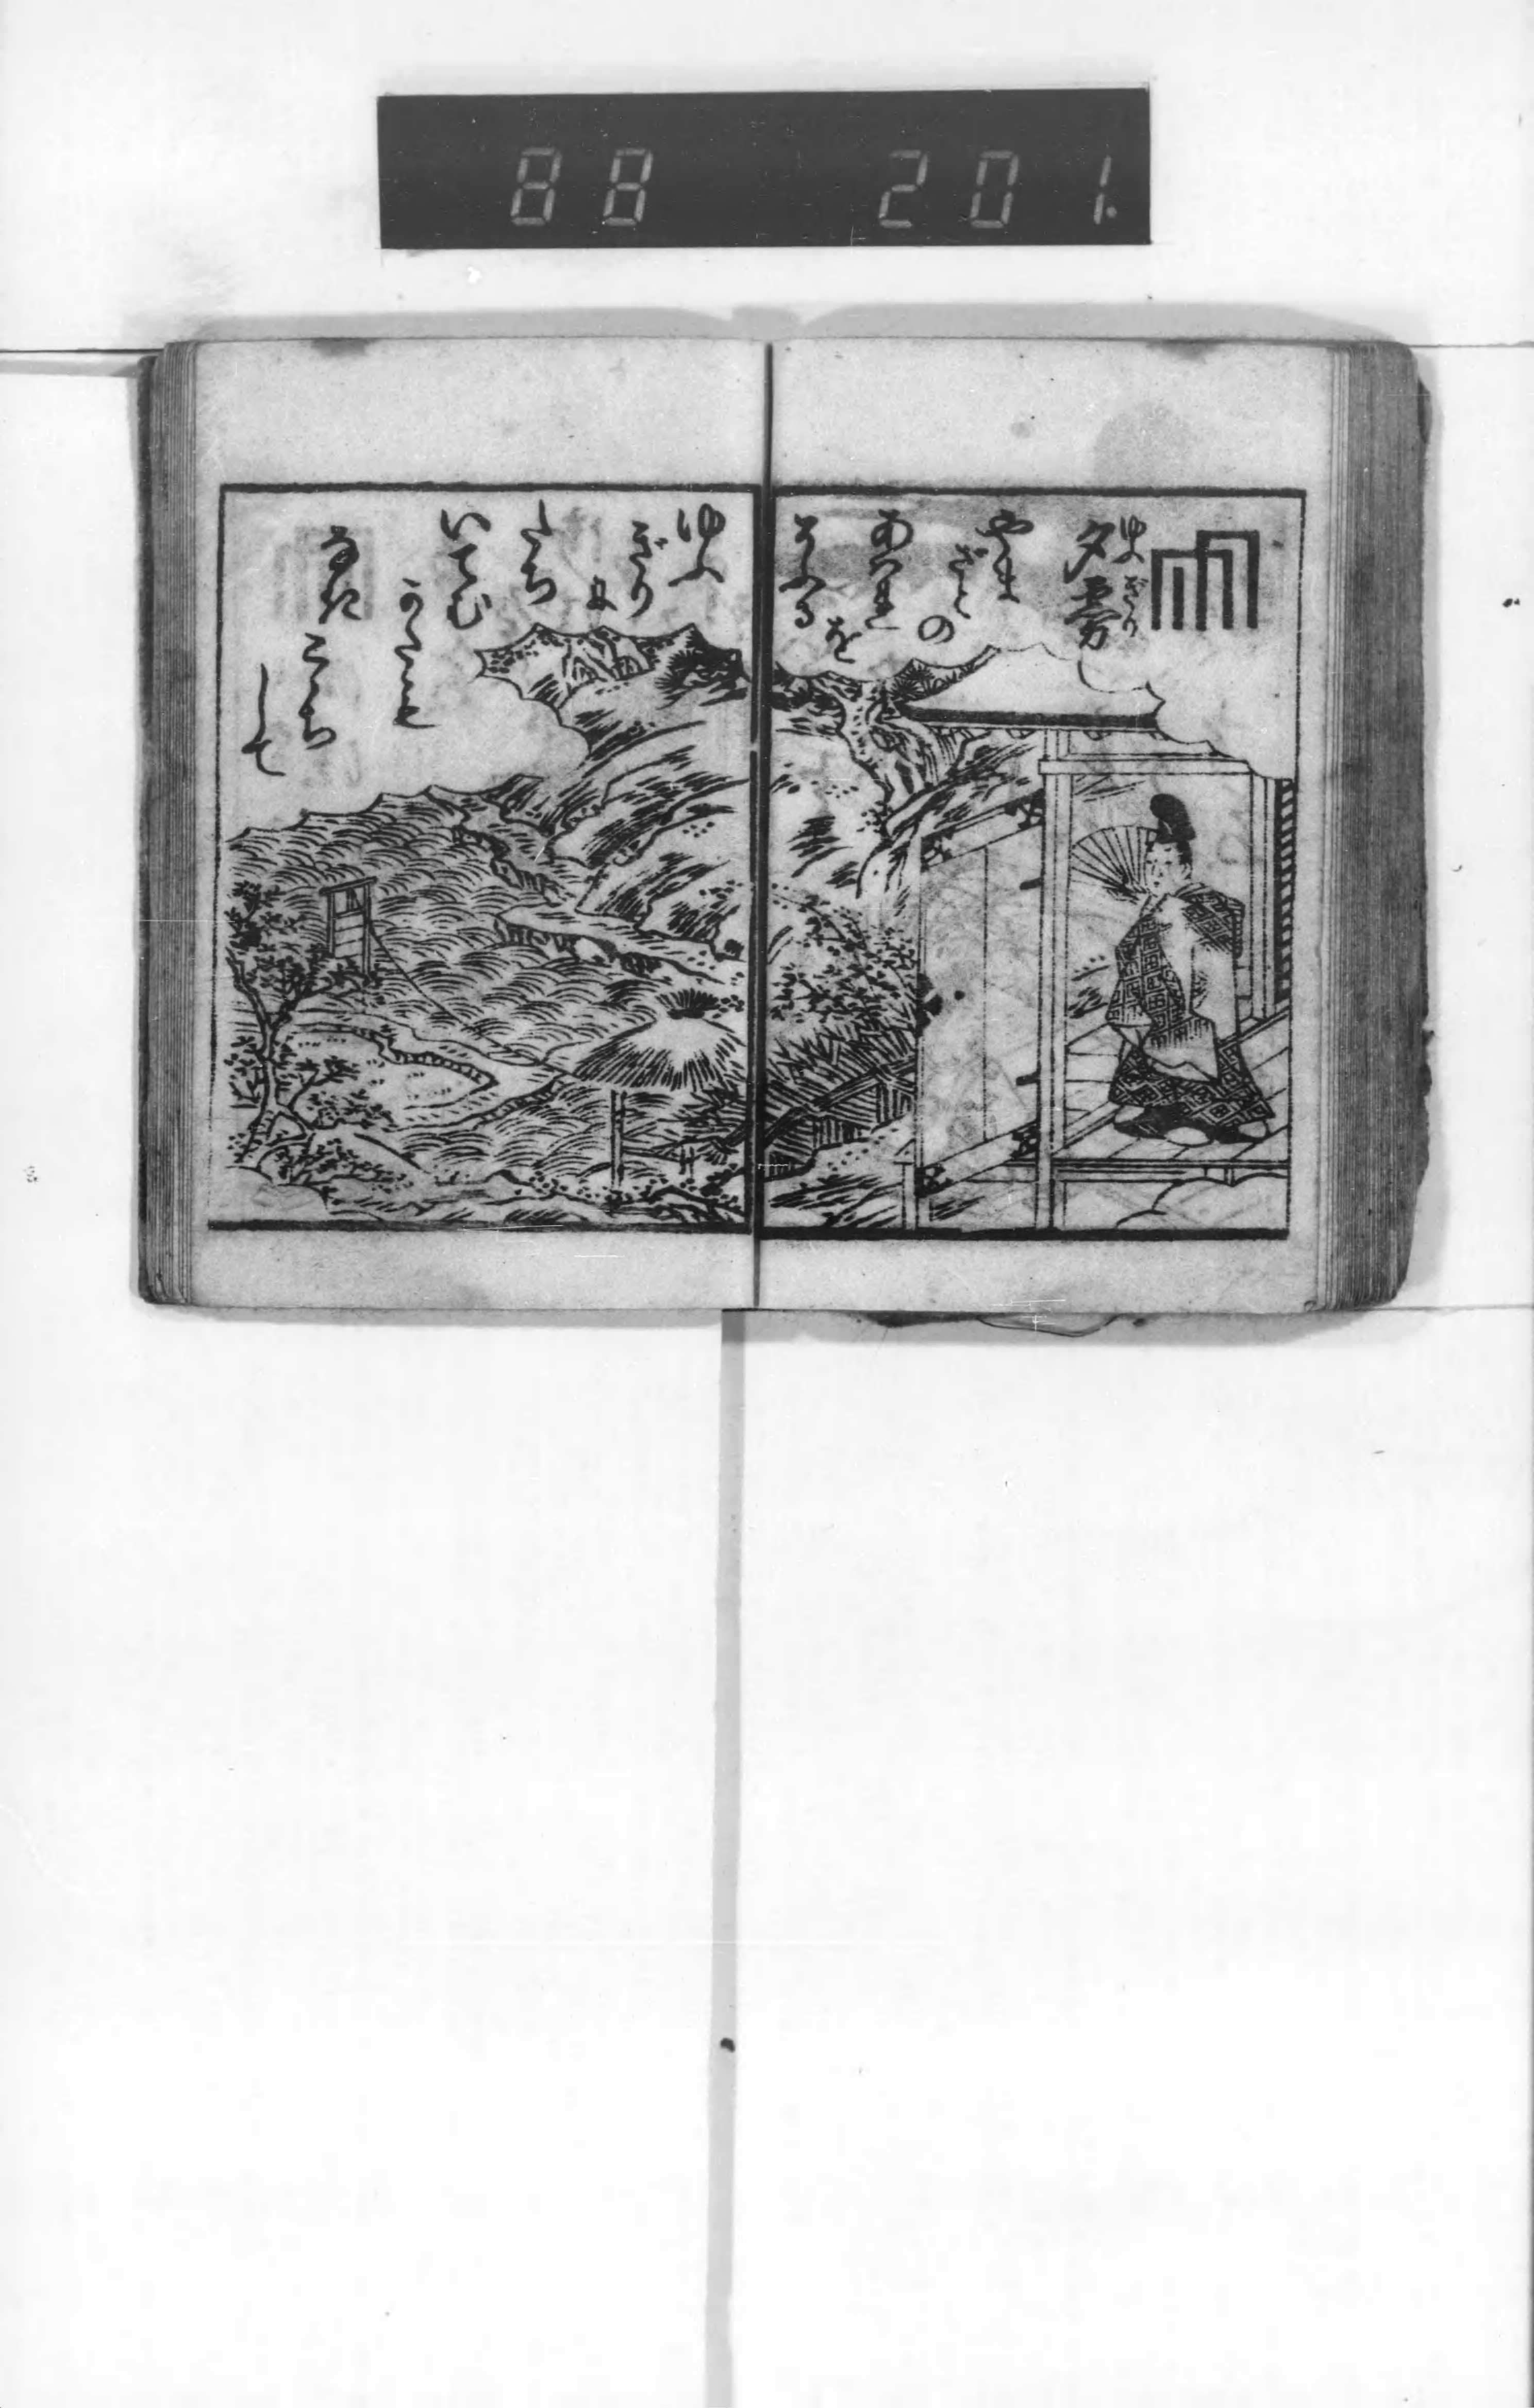 88 201.
夕霧
ゆふぎり
やま
ざと
の
あはれ
を
そふる
ゆふ
ぎり
に
たち
いでむ
かたも
なき
こゝち
して